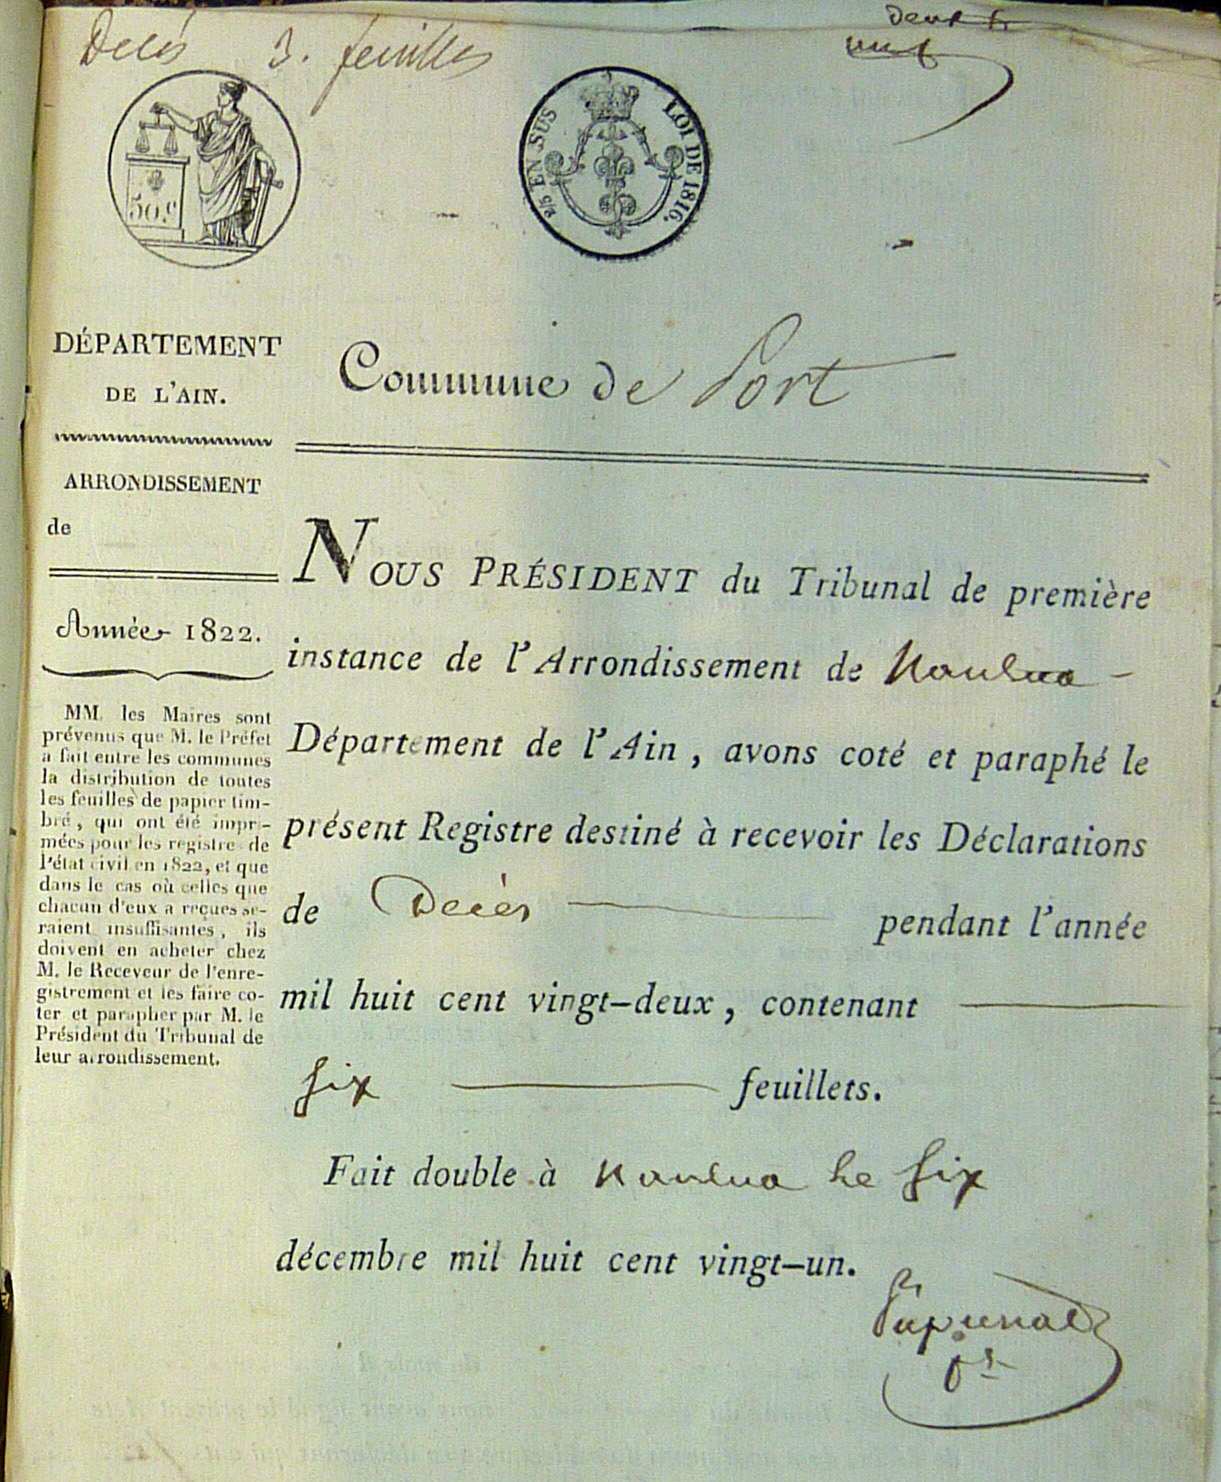 Decés 3. feuilles
50 c
2/5 EN SUS LOI DE 1816.
DÉPARTEMENT
DE L'AIN.
ARRONDISSEMENT
de
Année 1822.
MM. les Maires sont
prévenus que M. le Préfet
a fait entre les communes
la distribution de toutes
les feuilles de papier tim-
bré, qui ont été impri-
mées pour les registres de
l'état civil en 1822, et que
dans le cas où celles que
chacun d'eux a reçues se-
raient insuffisantes, ils
doivent en acheter chez
M. le Receveur de l'enre-
gistrement et les faire co-
ter et parapher par M. le
Président du Tribunal de
leur arrondissement.
Commune de Port
NOUS PRÉSIDENT du Tribunal de première
instance de l'Arrondissement de Nantua
Département de l'Ain, avons coté et paraphé le
présent Registre destiné à recevoir les Déclarations
de Décès pendant l'année
mil huit cent vingt-deux, contenant
six feuillets.
Fait double à Nantua le six
décembre mil huit cent vingt-un.